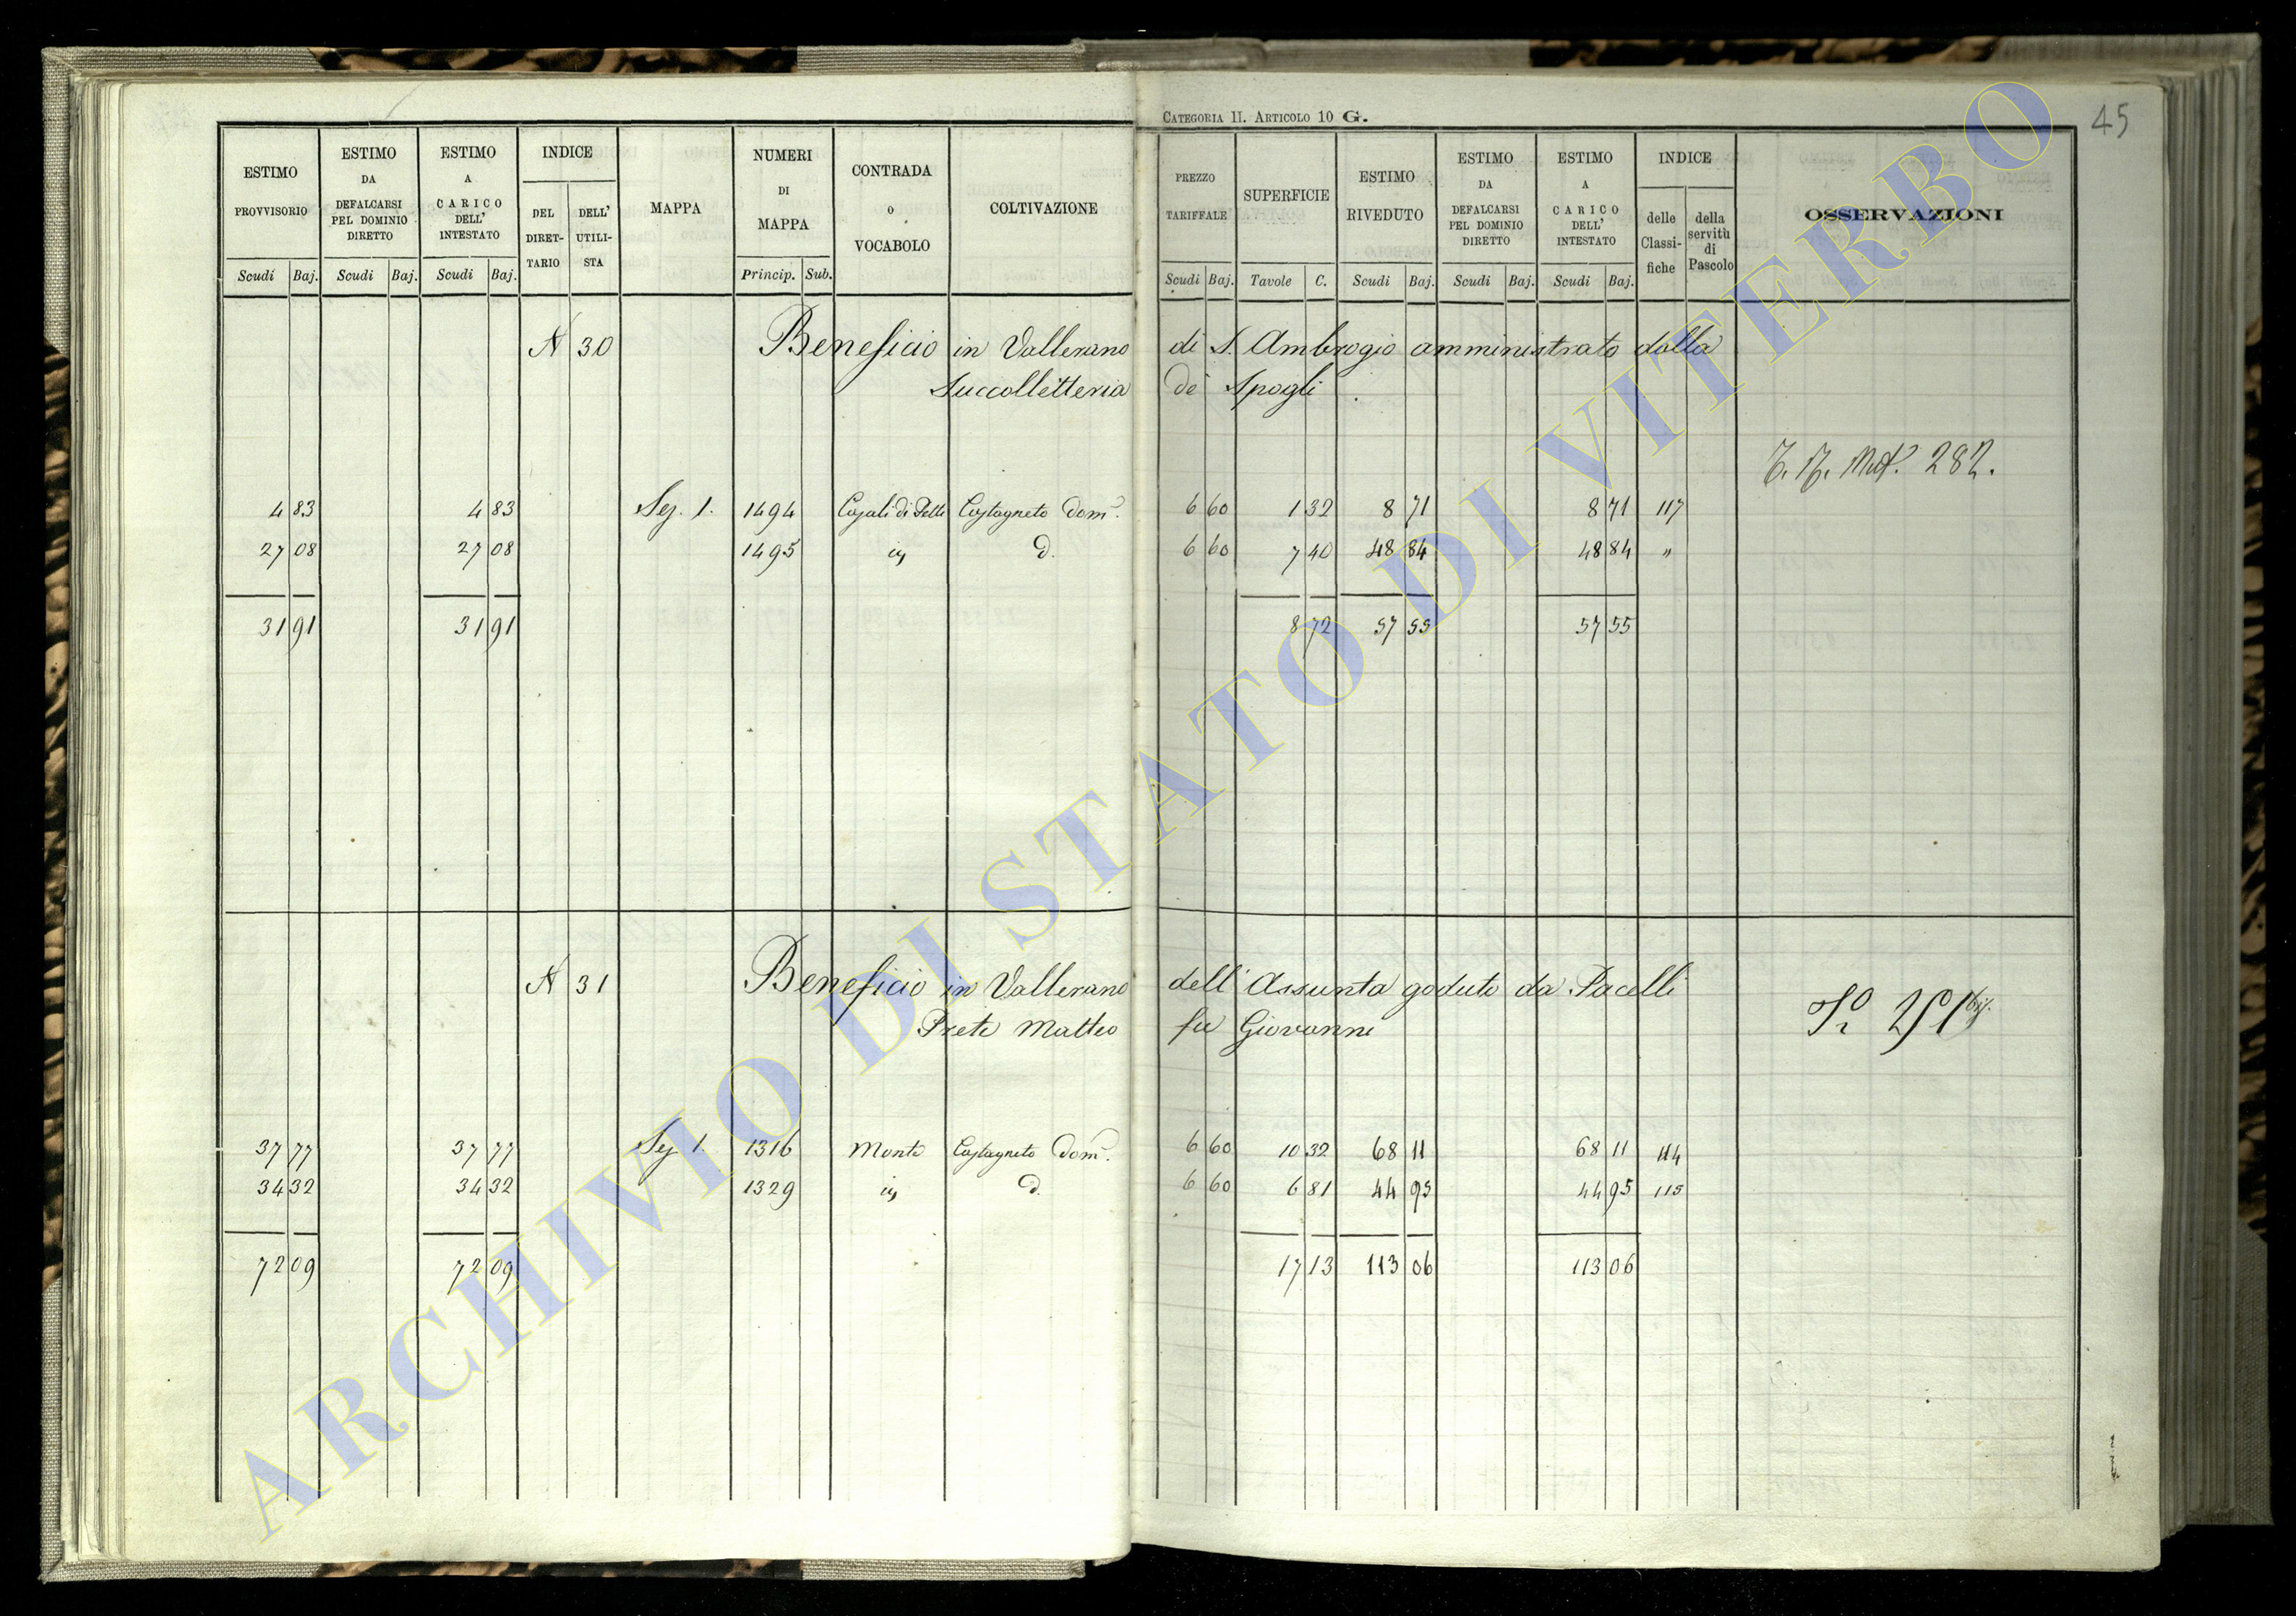 Categoria II. Articolo 10 G.
45
ESTIMO PROVVISORIO Scudi Baj.
ESTIMO DA DEFALCARSI PEL DOMINIO DIRETTO Scudi Baj.
ESTIMO A CARICO DELL' INTESTATO Scudi Baj.
INDICE DEL DIRET-TARIO DELL' UTILI-STA
MAPPA
NUMERI DI MAPPA Princip. Sub.
CONTRADA O VOCABOLO
COLTIVAZIONE
PREZZO TARIFFALE Scudi Baj.
SUPERFICIE Tavole C.
ESTIMO RIVEDUTO Scudi Baj.
ESTIMO DA DEFALCARSI PEL DOMINIO DIRETTO Scudi Baj.
ESTIMO A CARICO DELL' INTESTATO Scudi Baj.
INDICE delle Classi-fiche della servitù di Pascolo
OSSERVAZIONI
N 30 Beneficio in Vallerano di S. Ambrogio amministrato dalla
Succolletteria de Spogli
282.
4 83 4 83 Sez. 1. 1494 Casali di Castagneto Dom. 6 60 1 32 8 71 8 71 117
27 08 27 08 1495 id. 6 60 7 40 48 84 48 84 "
31 91 31 91 8 72 57 55 57 55
N 31 Beneficio in Vallerano dell' Assunta goduto da Pacelli
Prete Matteo fu Giovanni
37 77 37 77 Sez. 1. 1316 Monte Castagneto Dom. 6 60 10 32 68 11 68 11 114
34 32 34 32 1329 id. 6 60 6 81 44 95 44 95 115
72 09 72 09 17 13 113 06 113 06
ARCHIVIO DI STATO DI VITERBO